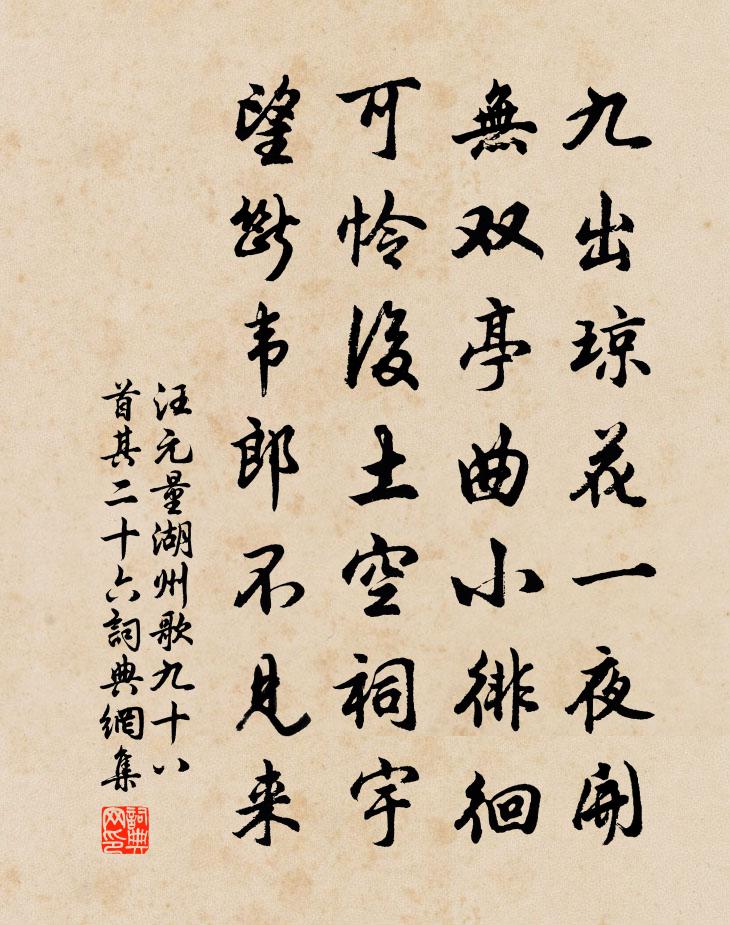 九出琼花一夜開
無双亭曲小徘徊
可怜後土空祠宇
望斷韦郎不見来
汪元量湖州歌九十八
首其二十六詞典網集
詞典网印